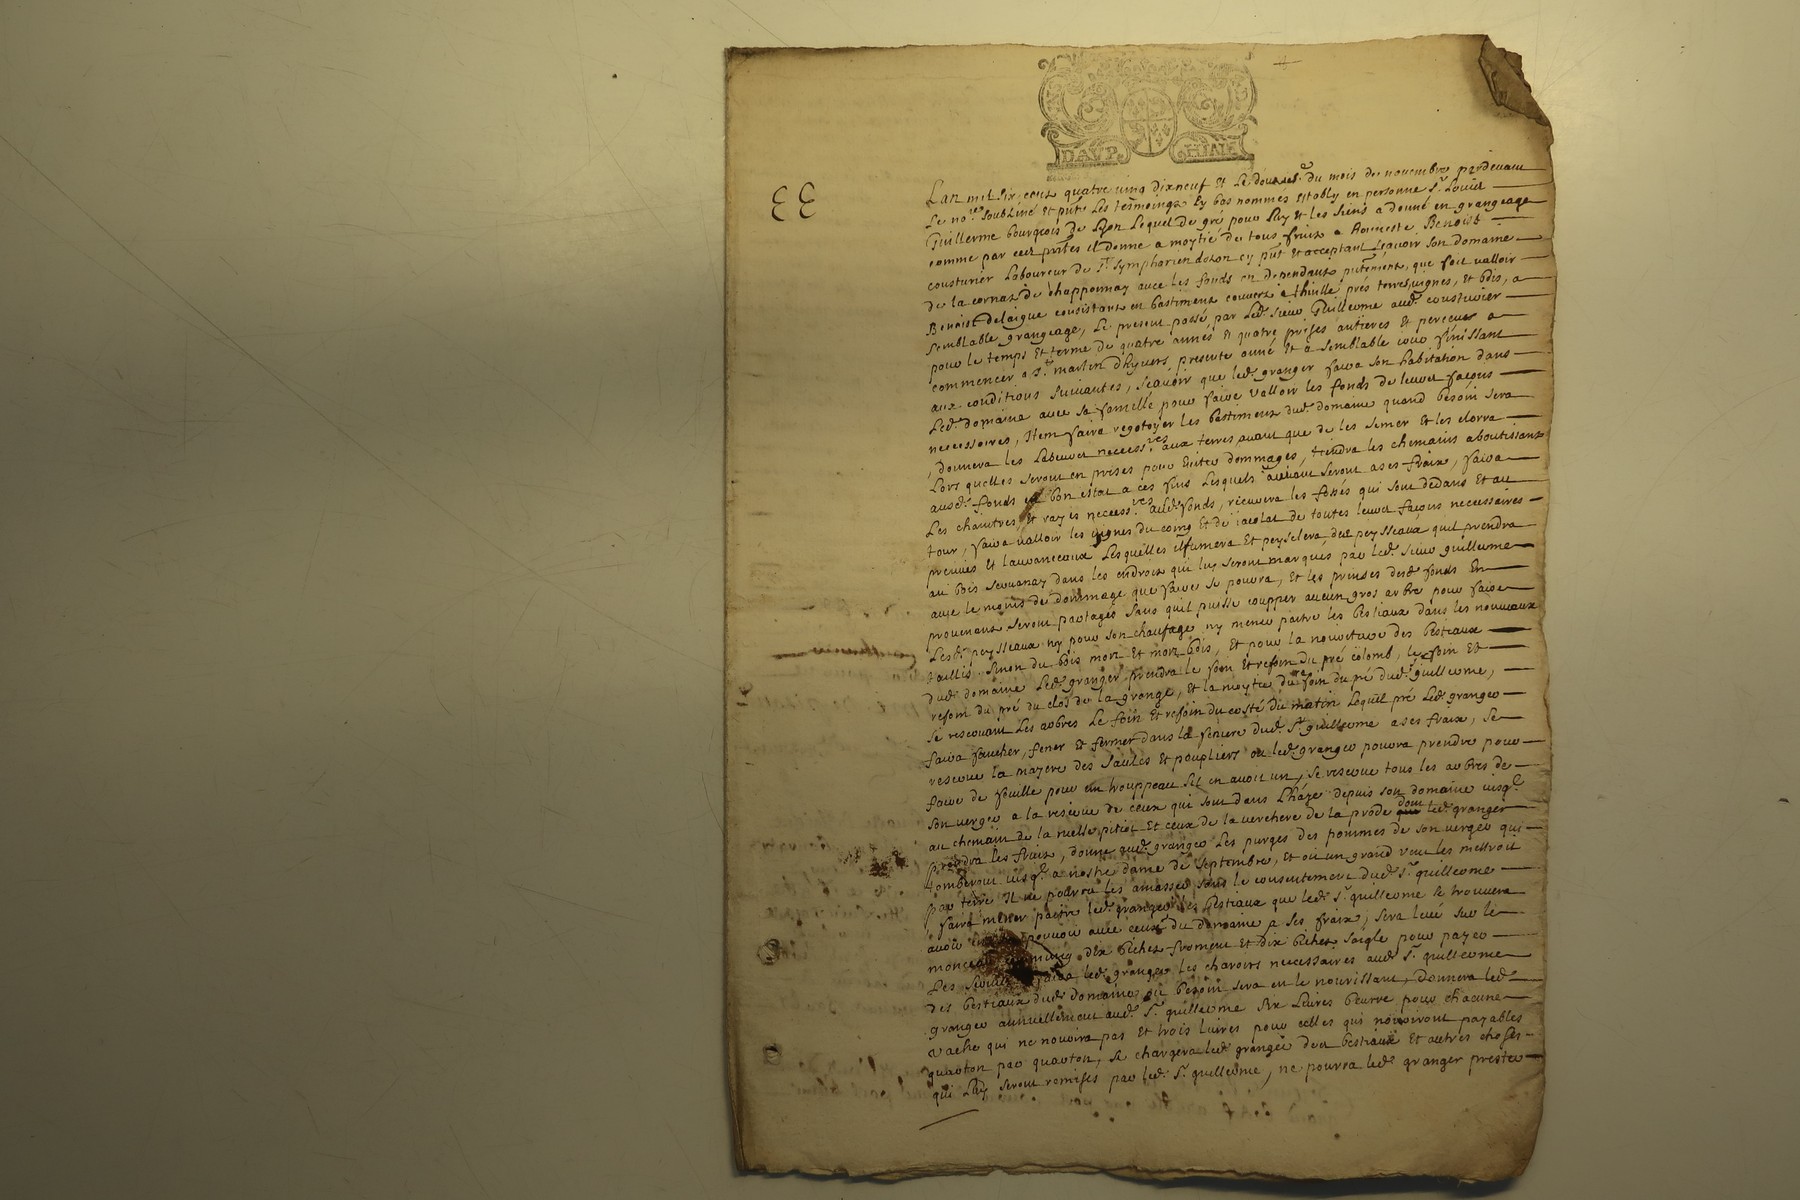 DAVP HINE
EE
Lan mil six cens quatre ving dixneuf et le douzie du mois de novembre pardevant
le nore soubsiné et pnts les tesmoings cy bas nommes estably en personne Sr Louis
Guillerme bourgeois de Lyon lequel de gré pour luy et les siens a donné en grangeage
comme par ces pntes il donne a moytié de tous fruis a honneste Benoist
cousturier laboureur de St Symphorien dozon cy pnt et acceptant scavoir son domaine
de la cornaz de chapponnay avec les fonds en dependans putement, que fait valloir
Benoist delaigue consistant en bastimens couvers a thuille prés terres, vignes, et bois, a
semblable grangeage, le present passé par led. sieur Guillerme aud. cousturier
pour le temps et terme de quatre annés et quatre prises antieres et perceues a
commencer a St martin d'hyvers presente anné et a semblable jour finissant
aux conditions suivantes, scavoir que led. granger faira son habitation dans
led. domaine avec sa famille pour faire valloir les fonds de leurs façons
necessoires, Item faira regotoyer les bastimens dud. domaine quand besoin sera
, donnera les labeures necessres aux terres avant que de les semer et les clorra
lors quelles seront en prises pour eviter dommages, tiendra les chemains aboutissans
ausd. fonds en bon estat a ces fins lesquels seront a ses fraix, faira
les chaintres, et rayes necessres ausd. fonds, recurera les fossés qui sont dedans et au
tour, faira valloir les vignes du coing et de de toutes leurs façons necessaires
preuves et lauvaneaux lesquelles il fumera et peyselera, des peysseaux quil prendra
au bois seruanay dans les endrois qui luy seront marqués par led. sieur guillerme
avec le moins de dommage que faire se pourra, et les prinses desd. fonds en
provenans seront partagés sans quil puisse coupper aucun gros arbre pour faire
lesd. peysseaux ny pour son chaufage ny mener paitre les bestiaux dans les nouveaux
taillis, sinon du bois mort et mort bois, et pour la nourriture des bestiaux
dud. domaine led. granger prendra le foin et refoin du pré colomb, le foin et
refoin du pré du clos de la grange, et la moytié du foin du pré dud. guillerme,
se reservant les arbres le foin et refoin du costé du matin lequel pré led. granger
faira faucher, fener et fermer dans la feniere dud. Sr guillerme a ses fraix, se
reserve la mayere des saules et poupliers ou led. granger pourra prendre pour
faire de fouille pour un trouppeau sil en avoit un, se reserve tous les arbres de
son verger a la reserve de ceux qui sont dans l'háye depuis son domaine jusq.
au chemain de la ruelle pitiot et ceux de la verchere de la prode dont led. granger
prendra les fruis, donne aud. granger les purges des pommes de son verger qui
tomberont jusq. a nostre dame de Septembre, et ou un grand vent les mettroit
par terre il ne pourra les amasser sans le consentement dud. Sr guillerme
faira mener paitre led. granger les bestiaux que led. Sr guillerme se trouvera
avoir pouvoir avec ceux du domaine a ses fraix, sera levé sur le
monceau dix bichets froment et dix bichets saigle pour payer
les led. granger les charois necessaires aud. Sr guillerme
des bestiaux dud. domaine ou besoin sera en le nourissant, donnera led.
granger annuellement aud. Sr guillerme six livres beurre pour chacune
vache qui ne nourira pas et trois livres pour celles qui nouriront payables
quarton par quarton, se chargera led. granger des bestiaux et autres choses
qui luy seront remises par led. Sr guillerme, ne pourra led. granger prester